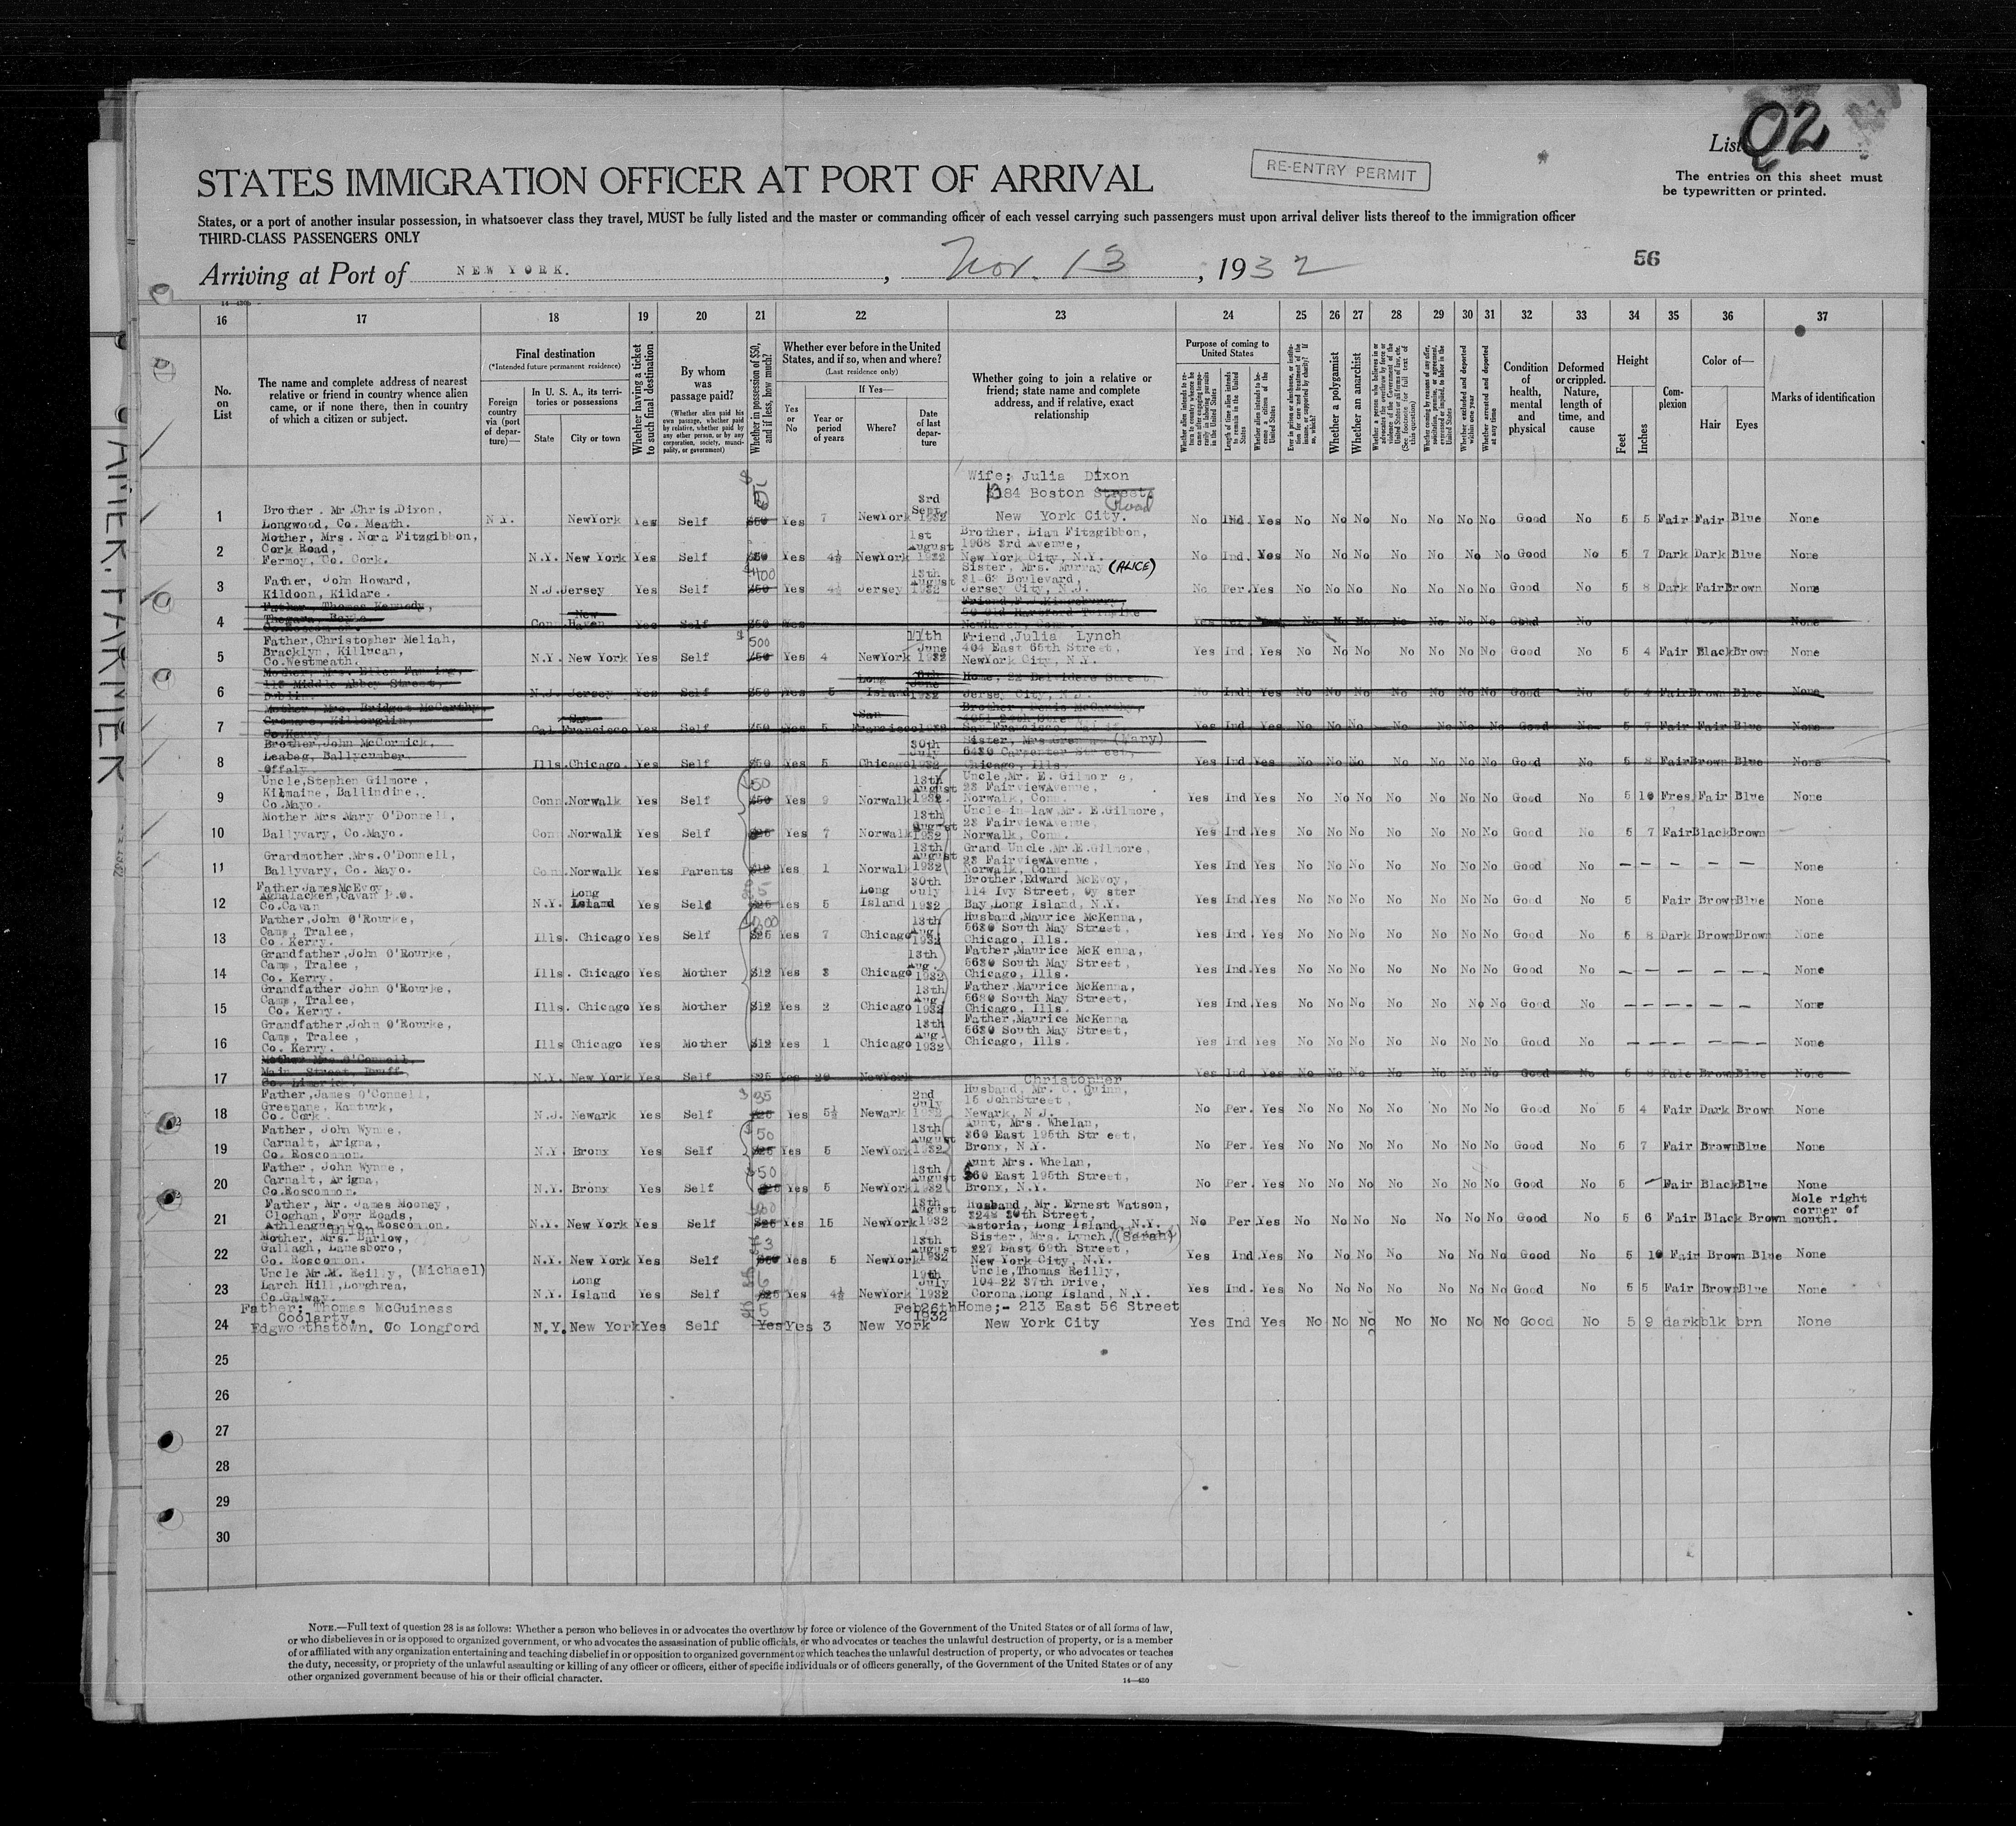 List Q2
The entries on this sheet must
be typewritten or printed.
STATES IMMIGRATION OFFICER AT PORT OF ARRIVAL
RE-ENTRY PERMIT
States, or a port of another insular possession, in whatsoever class they travel, MUST be fully listed and the master or commanding officer of each vessel carrying such passengers must upon arrival deliver lists thereof to the immigration officer
THIRD-CLASS PASSENGERS ONLY
Arriving at Port of NEW YORK. , Nov. 13 , 1932
56
14—430
16 17 18 19 20 21 22 23 24 25 26 27 28 29 30 31 32 33 34 35 36 37
No. on List
The name and complete address of nearest
relative or friend in country whence alien
came, or if none there, then in country
of which a citizen or subject.
Final destination
(*Intended future permanent residence)
Foreign country via (port of departure)—
In U. S. A., its territories or possessions
State City or town
Whether having a ticket to such final destination
By whom was passage paid?
(Whether alien paid his own passage, whether paid by relative, whether paid by any other person, or by any corporation, society, municipality, or government)
Whether in possession of $50, and if less, how much?
Whether ever before in the United
States, and if so, when and where?
(Last residence only)
Yes or No
If Yes—
Year or period of years Where? Date of last departure
Whether going to join a relative or
friend; state name and complete
address, and if relative, exact
relationship
Purpose of coming to United States
Length of time alien intends to remain in the United States
Whether alien intends to become a citizen of the United States
Whether a polygamist
Whether an anarchist
Whether excluded and deported within one year
Whether arrested and deported at any time
Condition of health, mental and physical
Deformed or crippled. Nature, length of time, and cause
Height
Feet Inches
Complexion
Color of—
Hair Eyes
Marks of identification
1 Brother. Mr. Chris. Dixon, Longwood, Co. Meath. N.Y. NewYork Yes Self $50 Yes 7 NewYork 3rd Sept. 1932 Wife; Julia Dixon 3184 Boston Street, Road New York City. No Ind. Yes No No No No No No No Good No 5 5 Fair Fair Blue None
2 Mother, Mrs. Nora Fitzgibbon, Cork Road, Fermoy, Co. Cork. N.Y. New York Yes Self $50 Yes 4½ NewYork 1st August 1932 Brother, Liam Fitzgibbon, 1968 3rd Avenue, New York City, N.Y. No Ind. Yes No No No No No No No Good No 5 7 Dark Dark Blue None
3 Father, John Howard, Kildoon, Kildare. N.J. Jersey Yes Self $400 $50 Yes 4½ Jersey 13th August 1932 Sister, Mrs. Murray (ALICE) 31-63 Boulevard, Jersey City, N.J. No Per. Yes No No No No No No No Good No 5 8 Dark Fair Brown None
4 Father, Thomas Kennedy, Conn. New Haven Yes Self $50 Yes Yes Per. Yes No No No No No No No Good No None
5 Father, Christopher Meliah, Bracklyn, Killucan, Co. Westmeath. N.Y. New York Yes Self 500 $50 Yes 4 NewYork 11th June 1932 Friend, Julia Lynch 404 East 65th Street, NewYork City, N.Y. Yes Ind. Yes No No No No No No No Good No 5 4 Fair Black Brown None
6 Middle Abbey Street, Dublin. N.J. Jersey Yes Self $50 Yes 5 Long Island 1932 Home, 22 Belvidere Street, Jersey City, N.J. No Ind Yes No No No No No No No Good No 5 4 Fair Brown Blue None
7 Mother, Mrs. Bridget McCarthy, Cromane, Killorglin, Co. Kerry Cal San Francisco Yes Self $50 Yes 5 San Francisco 1932 Brother, Denis McCarthy, San Francisco Yes Ind Yes No No No No No No No Good No 5 7 Fair Fair Blue None
8 Brother, John McCormick, Leabeg, Ballycumber. Offaly. Ills. Chicago. Yes Self $50 Yes 5 Chicago 30th July 1932 Sister, Mrs (Mary) 6430 Carpenter Street, Chicago, Ills. Yes Ind Yes No No No No No No No Good No 5 8 Fair Brown Blue None
9 Uncle, Stephen Gilmore, Kilmaine, Ballindine, Co. Mayo. Conn. Norwalk Yes Self 50 $50 Yes 9 Norwalk 13th August 1932. Uncle, Mr. E. Gilmore, 23 FairviewAvenue, Norwalk, Conn. Yes Ind Yes No No No No No No No Good No 5 10 Fres Fair Blue None
10 Mother Mrs Mary O'Donnell, Ballyvary, Co. Mayo. Conn. Norwalk Yes Self $25 Yes 7 Norwalk 13th August 1932 Uncle-in-law, Mr. E. Gilmore, 23 FairviewAvenue, Norwalk, Conn. Yes Ind Yes No No No No No No No Good No 5 7 Fair Black Brown —
11 Grandmother, Mrs. O'Donnell, Ballyvary, Co. Mayo. Conn. Norwalk Yes Parents $12 Yes 1 Norwalk 13th August 1932 Grand Uncle, Mr. E. Gilmore, 23 FairviewAvenue, Norwalk, Conn. Yes Ind Yes No No No No No No No Good No — — — — — None
12 Father James McEvoy, Aghalacken, Cavan P.O. Co. Cavan N.Y. Long Island Yes Self $25 Yes 5 Long Island 30th July 1932 Brother, Edward McEvoy, 114 Ivy Street, Oyster Bay, Long Island, N.Y. Yes Ind. Yes No No No No No No No Good No 5 Fair Brown Blue None
13 Father, John O'Rourke, Camp, Tralee, Co. Kerry. Ills. Chicago Yes Self $25 Yes 7 Chicago 13th Aug. 1932 Husband, Maurice McKenna, 5630 South May Street, Chicago, Ills. Yes Ind. Yes No No No No No No No Good No 5 8 Dark Brown Brown None
14 Grandfather, John O'Rourke, Camp, Tralee, Co. Kerry. Ills. Chicago Yes Mother $12 Yes 3 Chicago 13th Aug. 1932 Father, Maurice McKenna, 5630 South May Street, Chicago, Ills. Yes Ind. Yes No No No No No No No Good No — — — — — None
15 Grandfather John O'Rourke, Camp, Tralee, Co. Kerry. Ills. Chicago Yes Mother $12 Yes 2 Chicago 13th Aug. 1932 Father, Maurice McKenna, 5630 South May Street, Chicago, Ills. Yes Ind. Yes No No No No No No No Good No — — — — — None
16 Grandfather, John O'Rourke, Camp, Tralee, Co. Kerry. Ills Chicago Yes Mother $12 Yes 1 Chicago 13th Aug. 1932 Father, Maurice McKenna 5630 South May Street, Chicago, Ills. Yes Ind Yes No No No No No No No Good No — — — — — None
17 Mother Mrs O'Connell, Main Street, Bruff, Co. Limerick. N.Y. New York Yes Self $25 Yes 20 NewYork Yes Ind Yes No No No No No No No Good No 5 8 Pale Brown Blue None
18 Father, James O'Connell, Greenane, Kanturk, Co. Cork. N.J. Newark Yes Self 35 $25 Yes 5½ Newark 2nd July 1932 Christopher Husband, Mr. C. Quinn, 15 JohnStreet, Newark, N.J. No Per. Yes No No No No No No No Good No 5 4 Fair Dark Brown None
19 Father, John Wynne, Carnalt, Arigna, Co. Roscommon. N.Y. Bronx Yes Self 50 $25 Yes 5 NewYork 13th August 1932 Aunt, Mrs. Whelan, 360 East 195th Street, Bronx, N.Y. No Per. Yes No No No No No No No Good No 5 7 Fair Brown Blue None
20 Father, John Wynne, Carnalt, Arigna, Co. Roscommon. N.Y. Bronx Yes Self 50 $25 Yes 5 NewYork 13th August 1932 Aunt Mrs. Whelan, 360 East 195th Street, Bronx, N.Y. No Per. Yes No No No No No No No Good No 5 — Fair Black Blue None
21 Father, Mr. James Mooney, Cloghan, Four Roads, Athleague, Co. Roscommon. N.Y. New York Yes Self $25 Yes 15 NewYork 13th August 1932 Husband, Mr. Ernest Watson, 3248 30th Street, Astoria, Long Island, N.Y. No Per Yes No No No No No No No Good No 5 6 Fair Black Brown Mole right corner of mouth.
22 Mother, Mrs. Barlow, Gallagh, Lanesboro, Co. Roscommon. N.Y. New York Yes Self 73 $50 Yes 5 NewYork 13th August 1932 Sister, Mrs. Lynch, (Sarah) 227 East 69th Street, New York City, N.Y. Yes Ind. Yes No No No No No No No Good No 5 10 Fair Brown Blue None
23 Uncle Mr. M. Reilly, (Michael) Larch Hill, Loughrea, Co. Galway. N.Y. Long Island Yes Self $25 Yes 4½ NewYork 19th July 1932 Uncle, Thomas Reilly, 104-22 37th Drive, Corona, Long Island, N.Y. Yes Ind. Yes No No No No No No No Good No 5 5 Fair Brown Blue None
24 Father;- Thomas McGuiness Coolarty. Edgworthstown. Co Longford N.Y. New York Yes Self 5 Yes Yes 3 New York Feb 26th 1932 Home;- 213 East 56 Street New York City Yes Ind Yes No No No No No No No Good No 5 9 dark blk brn None
25
26
27
28
29
30
NOTE.—Full text of question 28 is as follows: Whether a person who believes in or advocates the overthrow by force or violence of the Government of the United States or of all forms of law,
or who disbelieves in or is opposed to organized government, or who advocates the assassination of public officials, or who advocates or teaches the unlawful destruction of property, or is a member
of or affiliated with any organization entertaining and teaching disbelief in or opposition to organized government or which teaches the unlawful destruction of property, or who advocates or teaches
the duty, necessity, or propriety of the unlawful assaulting or killing of any officer or officers, either of specific individuals or of officers generally, of the Government of the United States or of any
other organized government because of his or their official character.
14—430